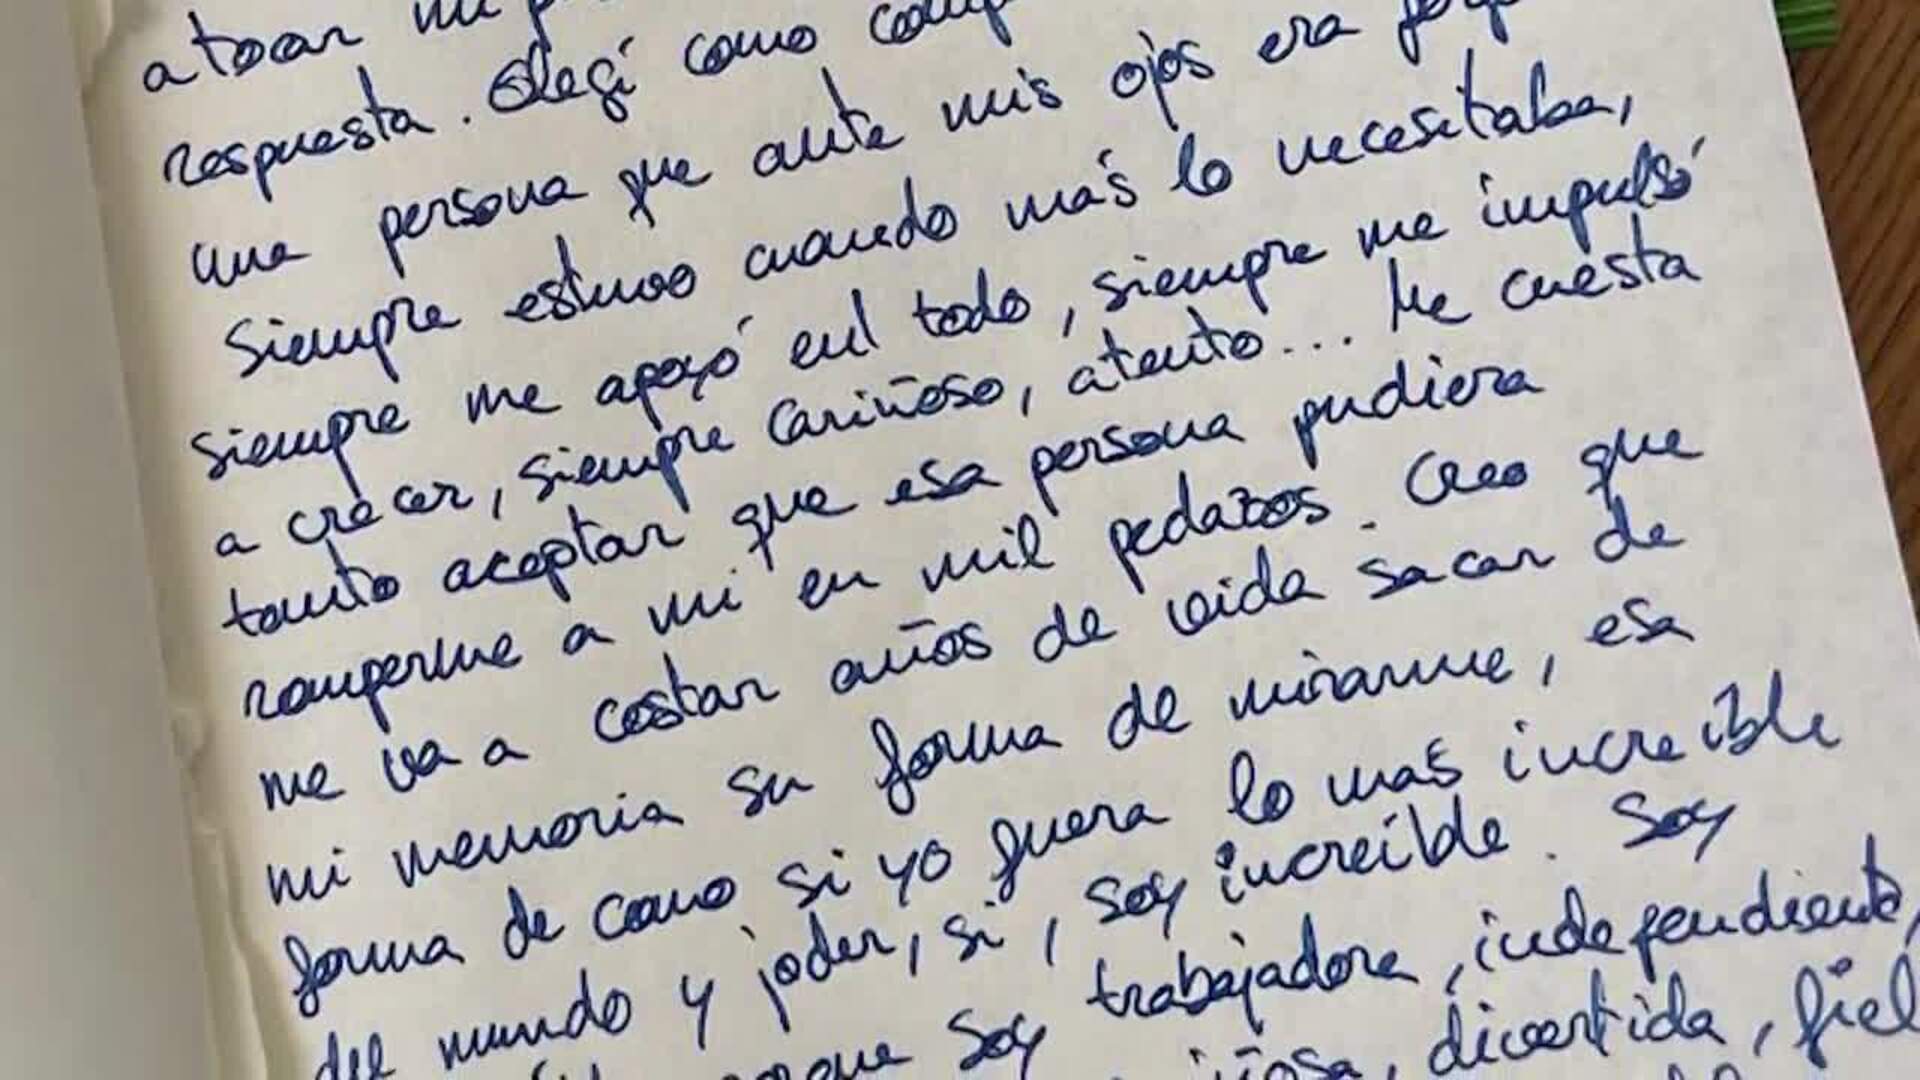 a tocar mi
respuesta. Elegí como
una persona que ante mis ojos era
siempre estuvo cuando más lo necesitaba,
siempre me apoyó enl todo, siempre me impulsó
a crecer, siempre cariñoso, atento... Me cuesta
tanto aceptar que esa persona pudiera
romperme a mi en mil pedazos. Creo que
me va a costar años de vida sacar de
mi memoria su forma de mirarme, esa
forma de como si yo fuera lo mas increible
del mundo y joder, si, soy increíble. Soy
soy trabajadora, independiente,
divertida, fiel